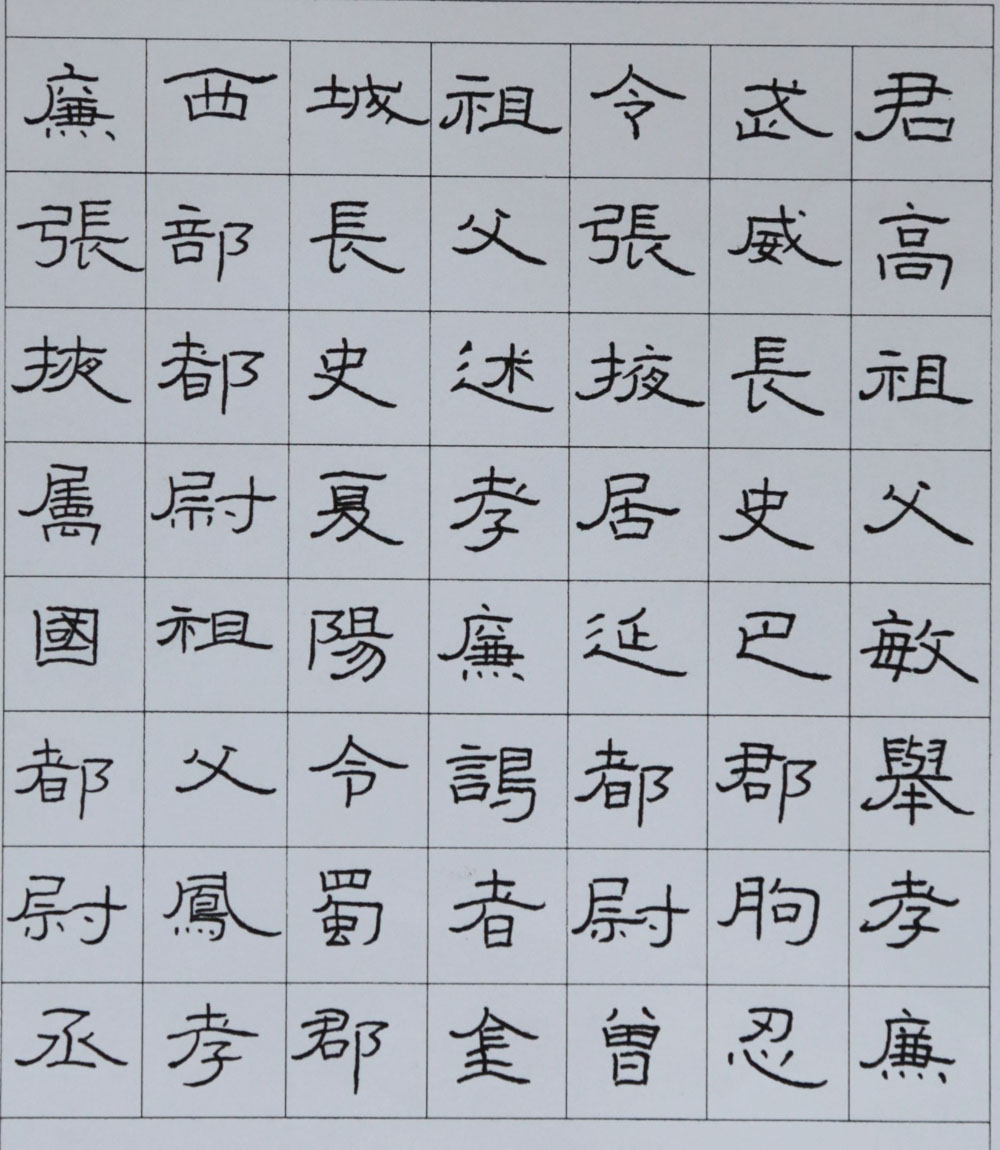 君高祖父敏舉孝廉
武威長史巴郡朐忍
令張掖居延都尉曾
祖父述孝廉謁者金
城長史夏陽令蜀郡
西部都尉祖父鳳孝
廉張掖屬國都尉丞